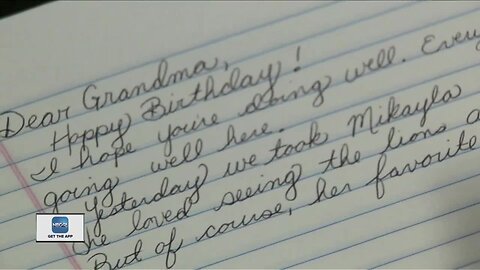 Dear Grandma,
Happy Birthday!
I hope you're doing well. Every
going well here.
Yesterday we took Mikayla
She loved seeing the lions a
But of course, her favorite
GET THE APP